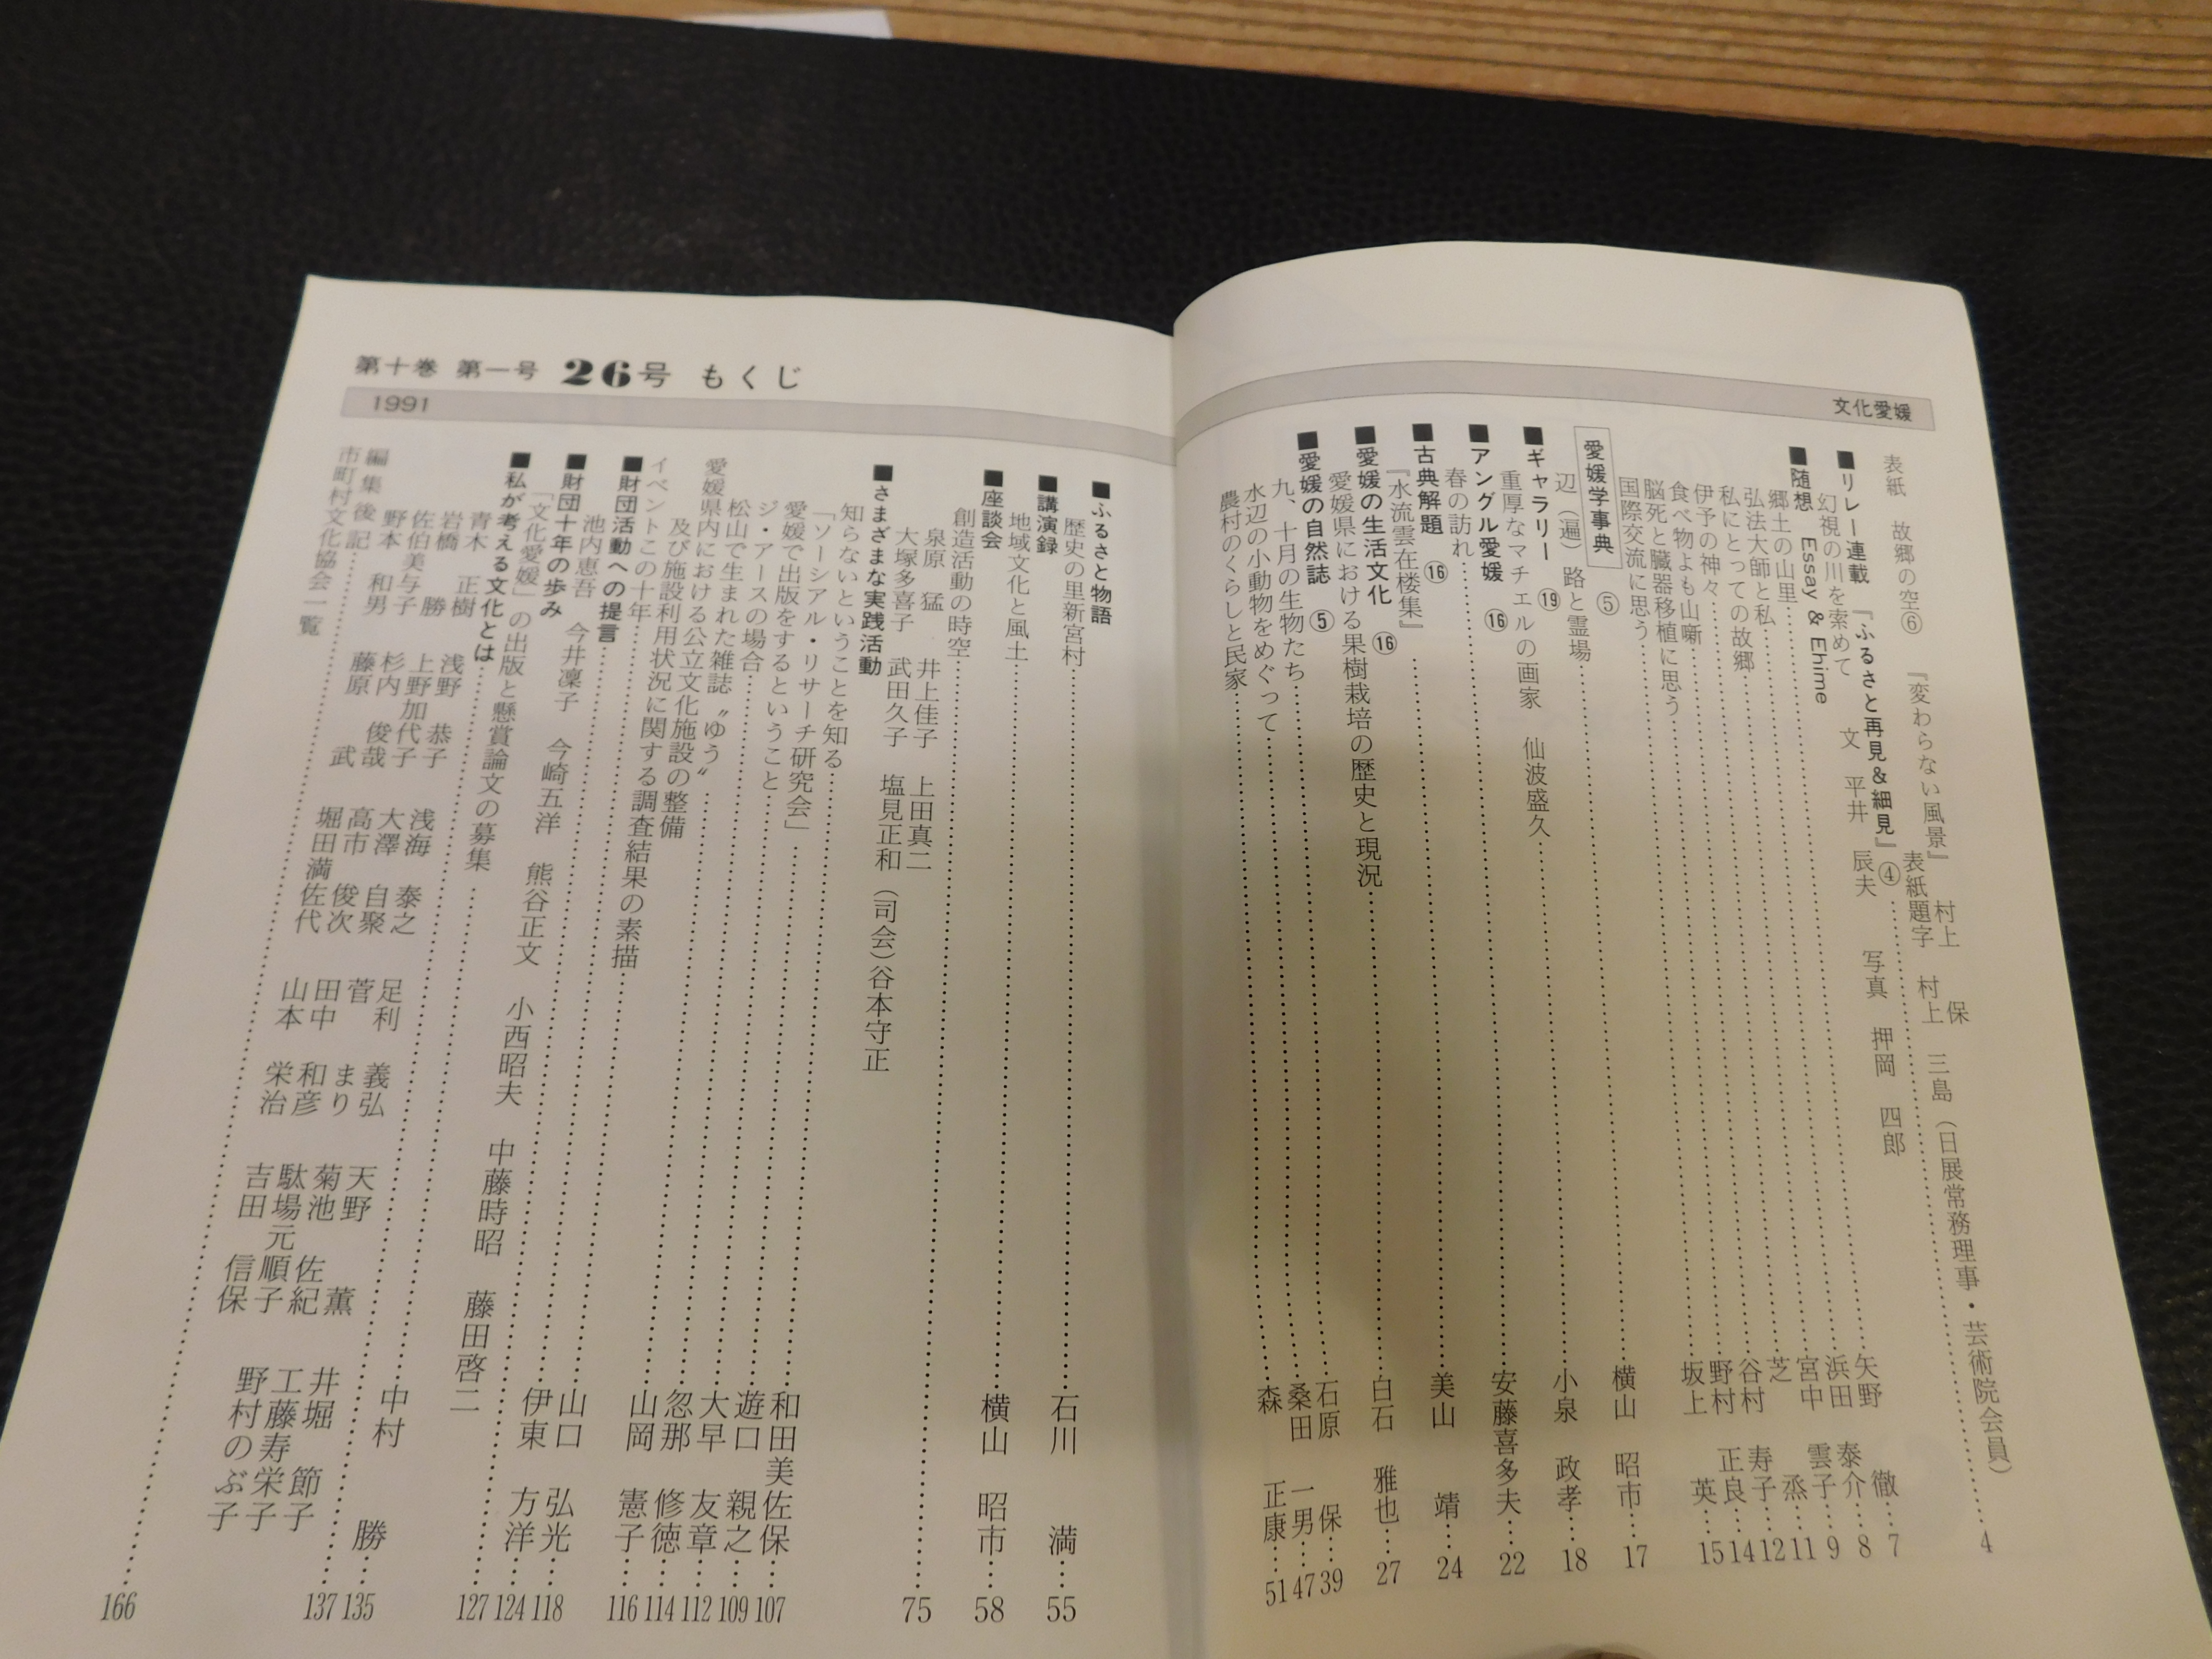 文化愛媛
表紙 故郷の空⑥ 『変わらない風景』 村上 保 三島
表紙題字 村上 三島(日展常務理事・芸術院会員)
■リレー連載 『ふるさと再見&細見』④……4
幻視の川を索めて 文 平井 辰夫 写真 押岡 四郎
■随想 Essay & Ehime
郷土の山里……矢野 徹……7
弘法大師と私……浜田 泰介……8
私にとっての故郷……宮中 雲子……9
伊予の神々……芝 烝……11
食べ物よも山噺……谷村 寿子……12
脳死と臓器移植に思う……野村 正良……14
国際交流に思う……坂上 英……15
愛媛学事典 ⑤
辺(遍)路と霊場……横山 昭市……17
■ギャラリー ⑲
重厚なマチエルの画家 仙波盛久……小泉 政孝……18
■アングル愛媛 ⑯
春の訪れ……安藤喜多夫……22
■古典解題 ⑯
『水流雲在楼集』……美山 靖……24
■愛媛の生活文化 ⑯
愛媛県における果樹栽培の歴史と現況……白石 雅也……27
■愛媛の自然誌 ⑤
九、十月の生物たち……石原 保……39
水辺の小動物をめぐって……桑田 一男……47
農村のくらしと民家……森 正康……51
第十巻 第一号 26号 もくじ
1991
■ふるさと物語
歴史の里新宮村……石川 満……55
■講演録
地域文化と風土……横山 昭市……58
■座談会
創造活動の時空……75
泉原 猛 井上佳子 上田真二
大塚多喜子 武田久子 塩見正和 (司会)谷本守正
■さまざまな実践活動
知らないということを知る……和田美佐保……107
「ソーシアル・リサーチ研究会」……遊口 親之……109
愛媛で出版をするということ……大早 友章……112
ジ・アースの場合……忽那 修徳……114
松山で生まれた雑誌〝ゆう〟……山岡 憲子……116
愛媛県内における公立文化施設の整備
及び施設利用状況に関する調査結果の素描……山口 弘光……118
イベントこの十年……伊東 方洋……124
■財団活動への提言……127
池内恵吾 今井凜子 今崎五洋 熊谷正文 小西昭夫 中藤時昭 藤田啓二
■財団十年の歩み
「文化愛媛」の出版と懸賞論文の募集……中村 勝……135
■私が考える文化とは……137
青木 正樹 浅野 恭子 浅海 泰之 足利 義弘 天野 薫 井堀 節子
岩橋 勝 上野加代子 大澤 自聚 菅 まり 菊池 佐紀 工藤寿栄子
佐伯美与子 杉内 俊哉 高市 俊次 田中 和彦 駄場元順子 野村のぶ子
野本 和男 藤原 武 堀田満佐代 山本 栄治 吉田 信保
編集後記
市町村文化協会一覧……166